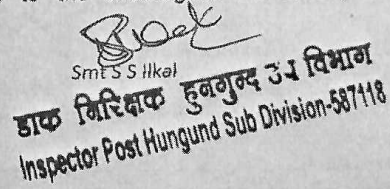 Smt S S Ilkal
डाक निरिक्षक हुनगुन्द उप विभाग
Inspector Post Hungund Sub Division-587118